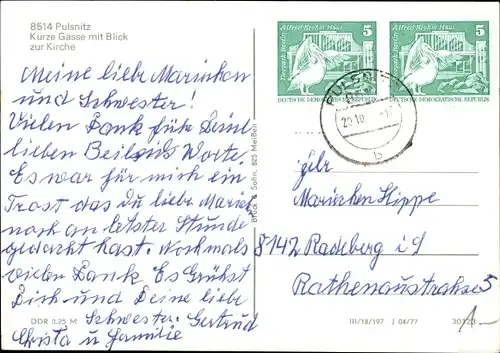 8514 Pulsnitz
Kurze Gasse mit Blick
zur Kirche
Meine liebe Marinchen
und Schwester!
Vielen Dank für Deine
lieben Beileids Worte.
Es war für mich ein
Trost das Du liebe Marie
noch an letzter Stunde
gedacht hast. Nochmals
vielen Dank Es Grüßt
Dich und Deine liebe
Schwester. Gertrud
Christa u Familie
DDR 0,25 M
Brück & Sohn, 825 Meißen
Alfred-Brehm-Haus 5
Tierpark Berlin
DEUTSCHE DEMOKRATISCHE REPUBLIK
Alfred-Brehm-Haus 5
Tierpark Berlin
DEUTSCHE DEMOKRATISCHE REPUBLIK
PULSNITZ
20.10
b
Marinchen Hippe
8142 Radeberg i/S
Rathenaustrahse 5
III/18/197 J 04/77
30123
1-